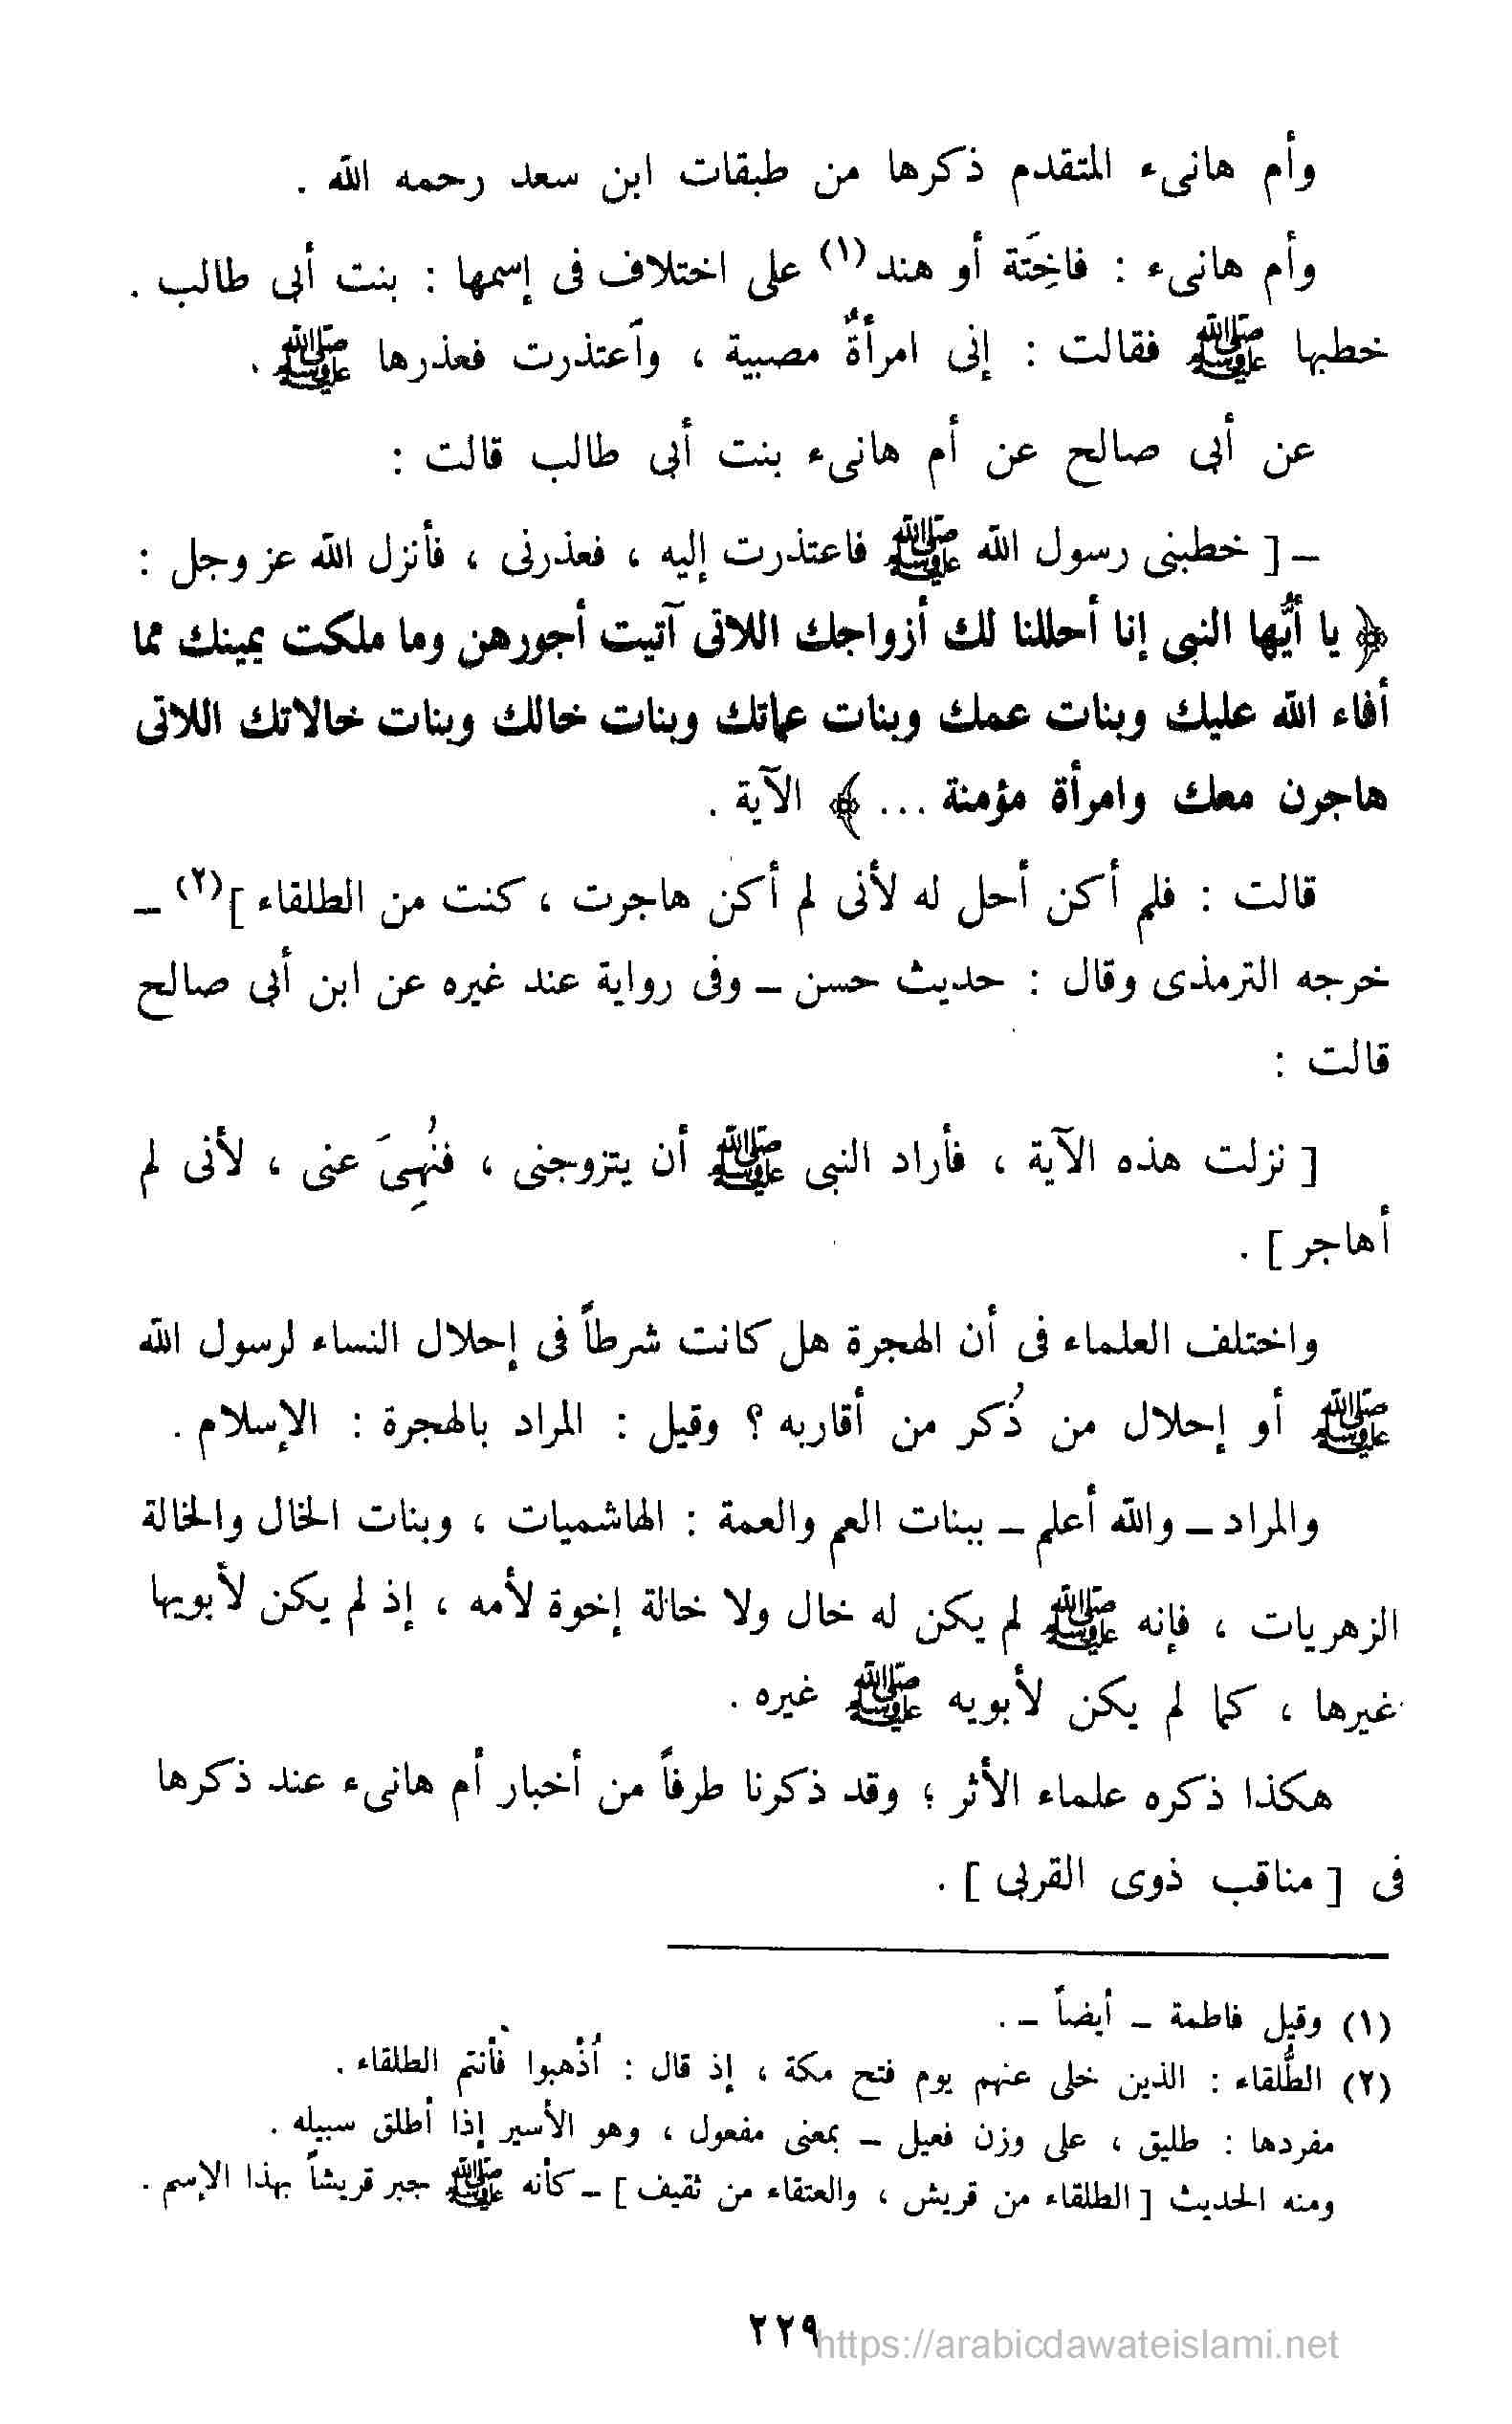 وأم هانىء المتقدم ذكرها من طبقات ابن سعد رحمه الله .
وأم هانىء : فاخِتَة أو هند (١) على اختلاف فى إسمها : بنت أبى طالب .
خطبها ﷺ فقالت : إنى امرأةٌ مصبية ، وآعتذرت فعذرها ﷺ .
عن أبى صالح عن أم هانىء بنت أبى طالب قالت :
ـ [ خطبنى رسول الله ﷺ فاعتذرت إليه ، فعذرنى ، فأنزل الله عز وجل :
﴿ يا أيُّها النبى إنا أحللنا لك أزواجك اللاتى آتيت أجورهن وما ملكت يمينك مما
أفاء الله عليك وبنات عمك وبنات عماتك وبنات خالك وبنات خالاتك اللاتى
هاجرن معك وامرأة مؤمنة ... ﴾ الآية .
قالت : فلم أكن أحل له لأنى لم أكن هاجرت ، كنت من الطلقاء ] (٢) ـ
خرجه الترمذى وقال : حديث حسن ـ وفى رواية عند غيره عن ابن أبى صالح
قالت :
[ نزلت هذه الآية ، فأراد النبى ﷺ أن يتزوجنى ، فنُهِىَ عنى ، لأنى لم
أهاجر ] .
واختلف العلماء فى أن الهجرة هل كانت شرطاً فى إحلال النساء لرسول الله
ﷺ أو إحلال من ذُكر من أقاربه ؟ وقيل : المراد بالهجرة : الإسلام .
والمراد ـ والله أعلم ـ ببنات العم والعمة : الهاشميات ، وبنات الخال والخالة
الزهريات ، فإنه ﷺ لم يكن له خال ولا خالة إخوة لأمه ، إذ لم يكن لأبويها
غيرها ، كما لم يكن لأبويه ﷺ غيره .
هكذا ذكره علماء الأثر ؛ وقد ذكرنا طرفاً من أخبار أم هانىء عند ذكرها
فى [ مناقب ذوى القربى ] .
(١) وقيل فاطمة ـ أيضاً ـ .
(٢) الطُّلقاء : الذين خلى عنهم يوم فتح مكة ، إذ قال : اُذْهبوا فأنتم الطلقاء .
مفردها : طليق ، على وزن فعيل ـ بمعنى مفعول ، وهو الأسير إذا أطلق سبيله .
ومنه الحديث [ الطلقاء من قريش ، والعتقاء من ثقيف ] ـ كأنه ﷺ جبر قريشاً بهذا الإسم .
٢٢٩ https://arabicdawateislami.net